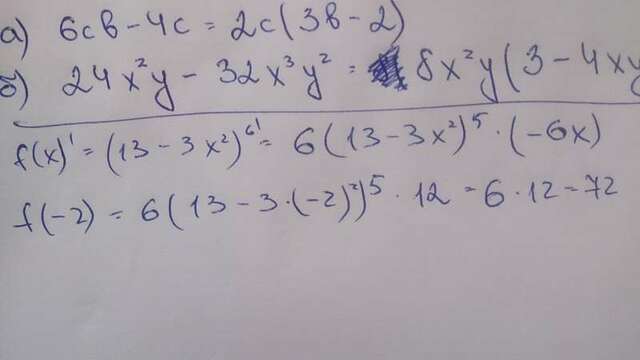 а) 6cв - 4c = 2c(3в - 2)
б) 24x²y - 32x³y² = 8x²y(3 - 4xy
f(x)' = (13 - 3x²)⁶' = 6(13 - 3x²)⁵ · (-6x)
f(-2) = 6(13 - 3·(-2)²)⁵ · 12 = 6 · 12 = 72